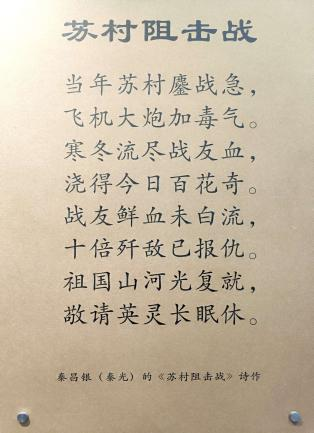 苏村阻击战
当年苏村鏖战急，
飞机大炮加毒气。
寒冬流尽战友血，
浇得今日百花奇。
战友鲜血未白流，
十倍歼敌已报仇。
祖国山河光复就，
敬请英灵长眠休。
秦昌银（秦光）的《苏村阻击战》诗作